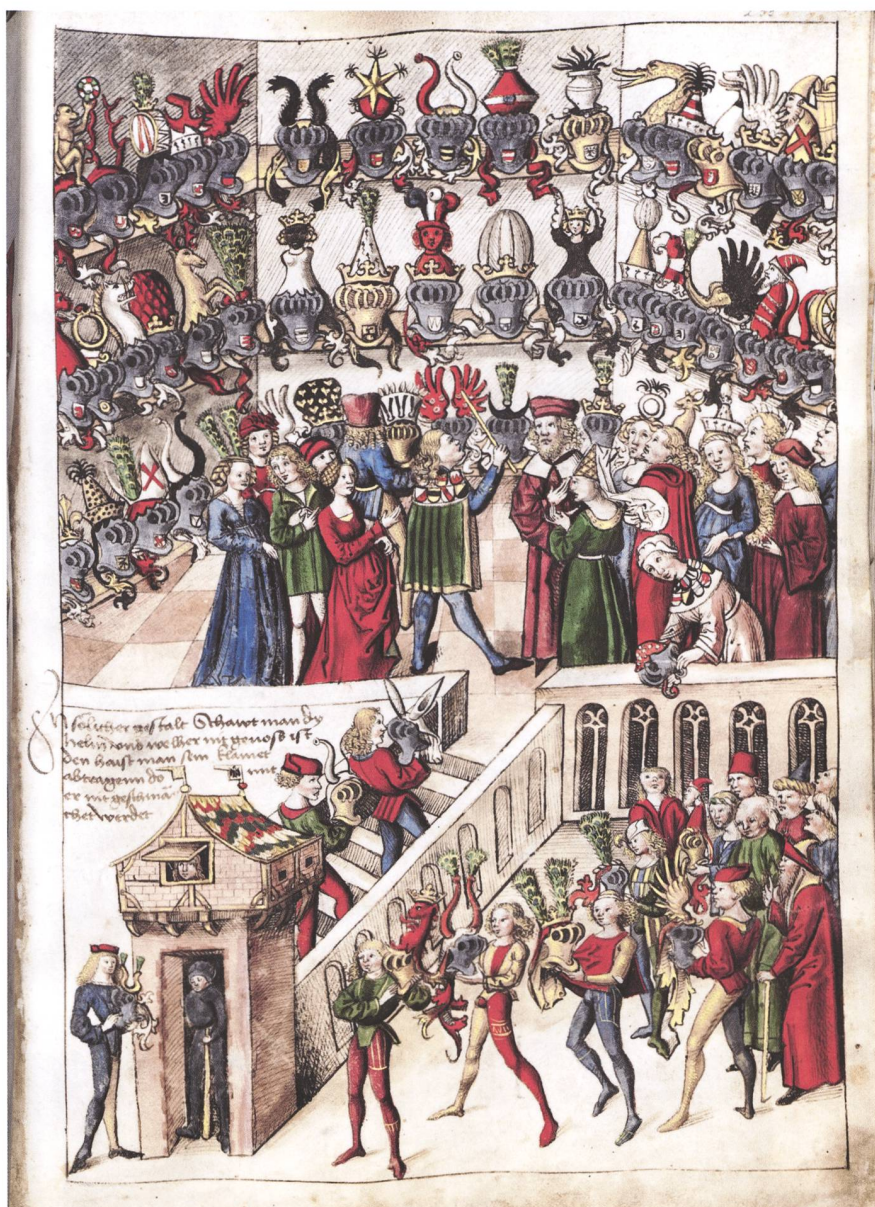 In solicher gestalt Schawt man dy
helm vnd welher nit genoss ist
den haist man sein klainet
abtragenn do mit
er nit geschmä
chet werdet